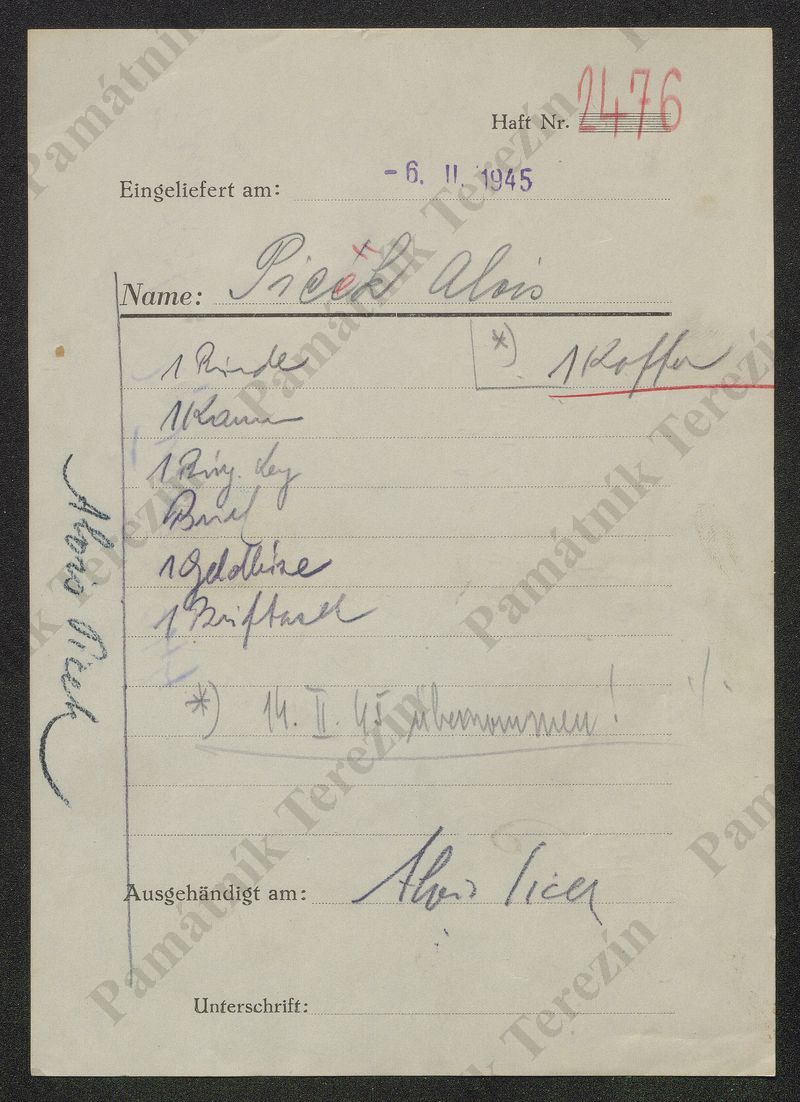 Haft Nr. 2476
Eingeliefert am: - 6. II. 1945
Name: Alois
*) 1 Koffer
1 Binde
1 Kamm
1 Ring. Leg
1 Geldbörse
1 Brieftasch
*) 14. II. 45 übernommen!
Ausgehändigt am: Alois
Unterschrift:
Alois
Památník Terezín